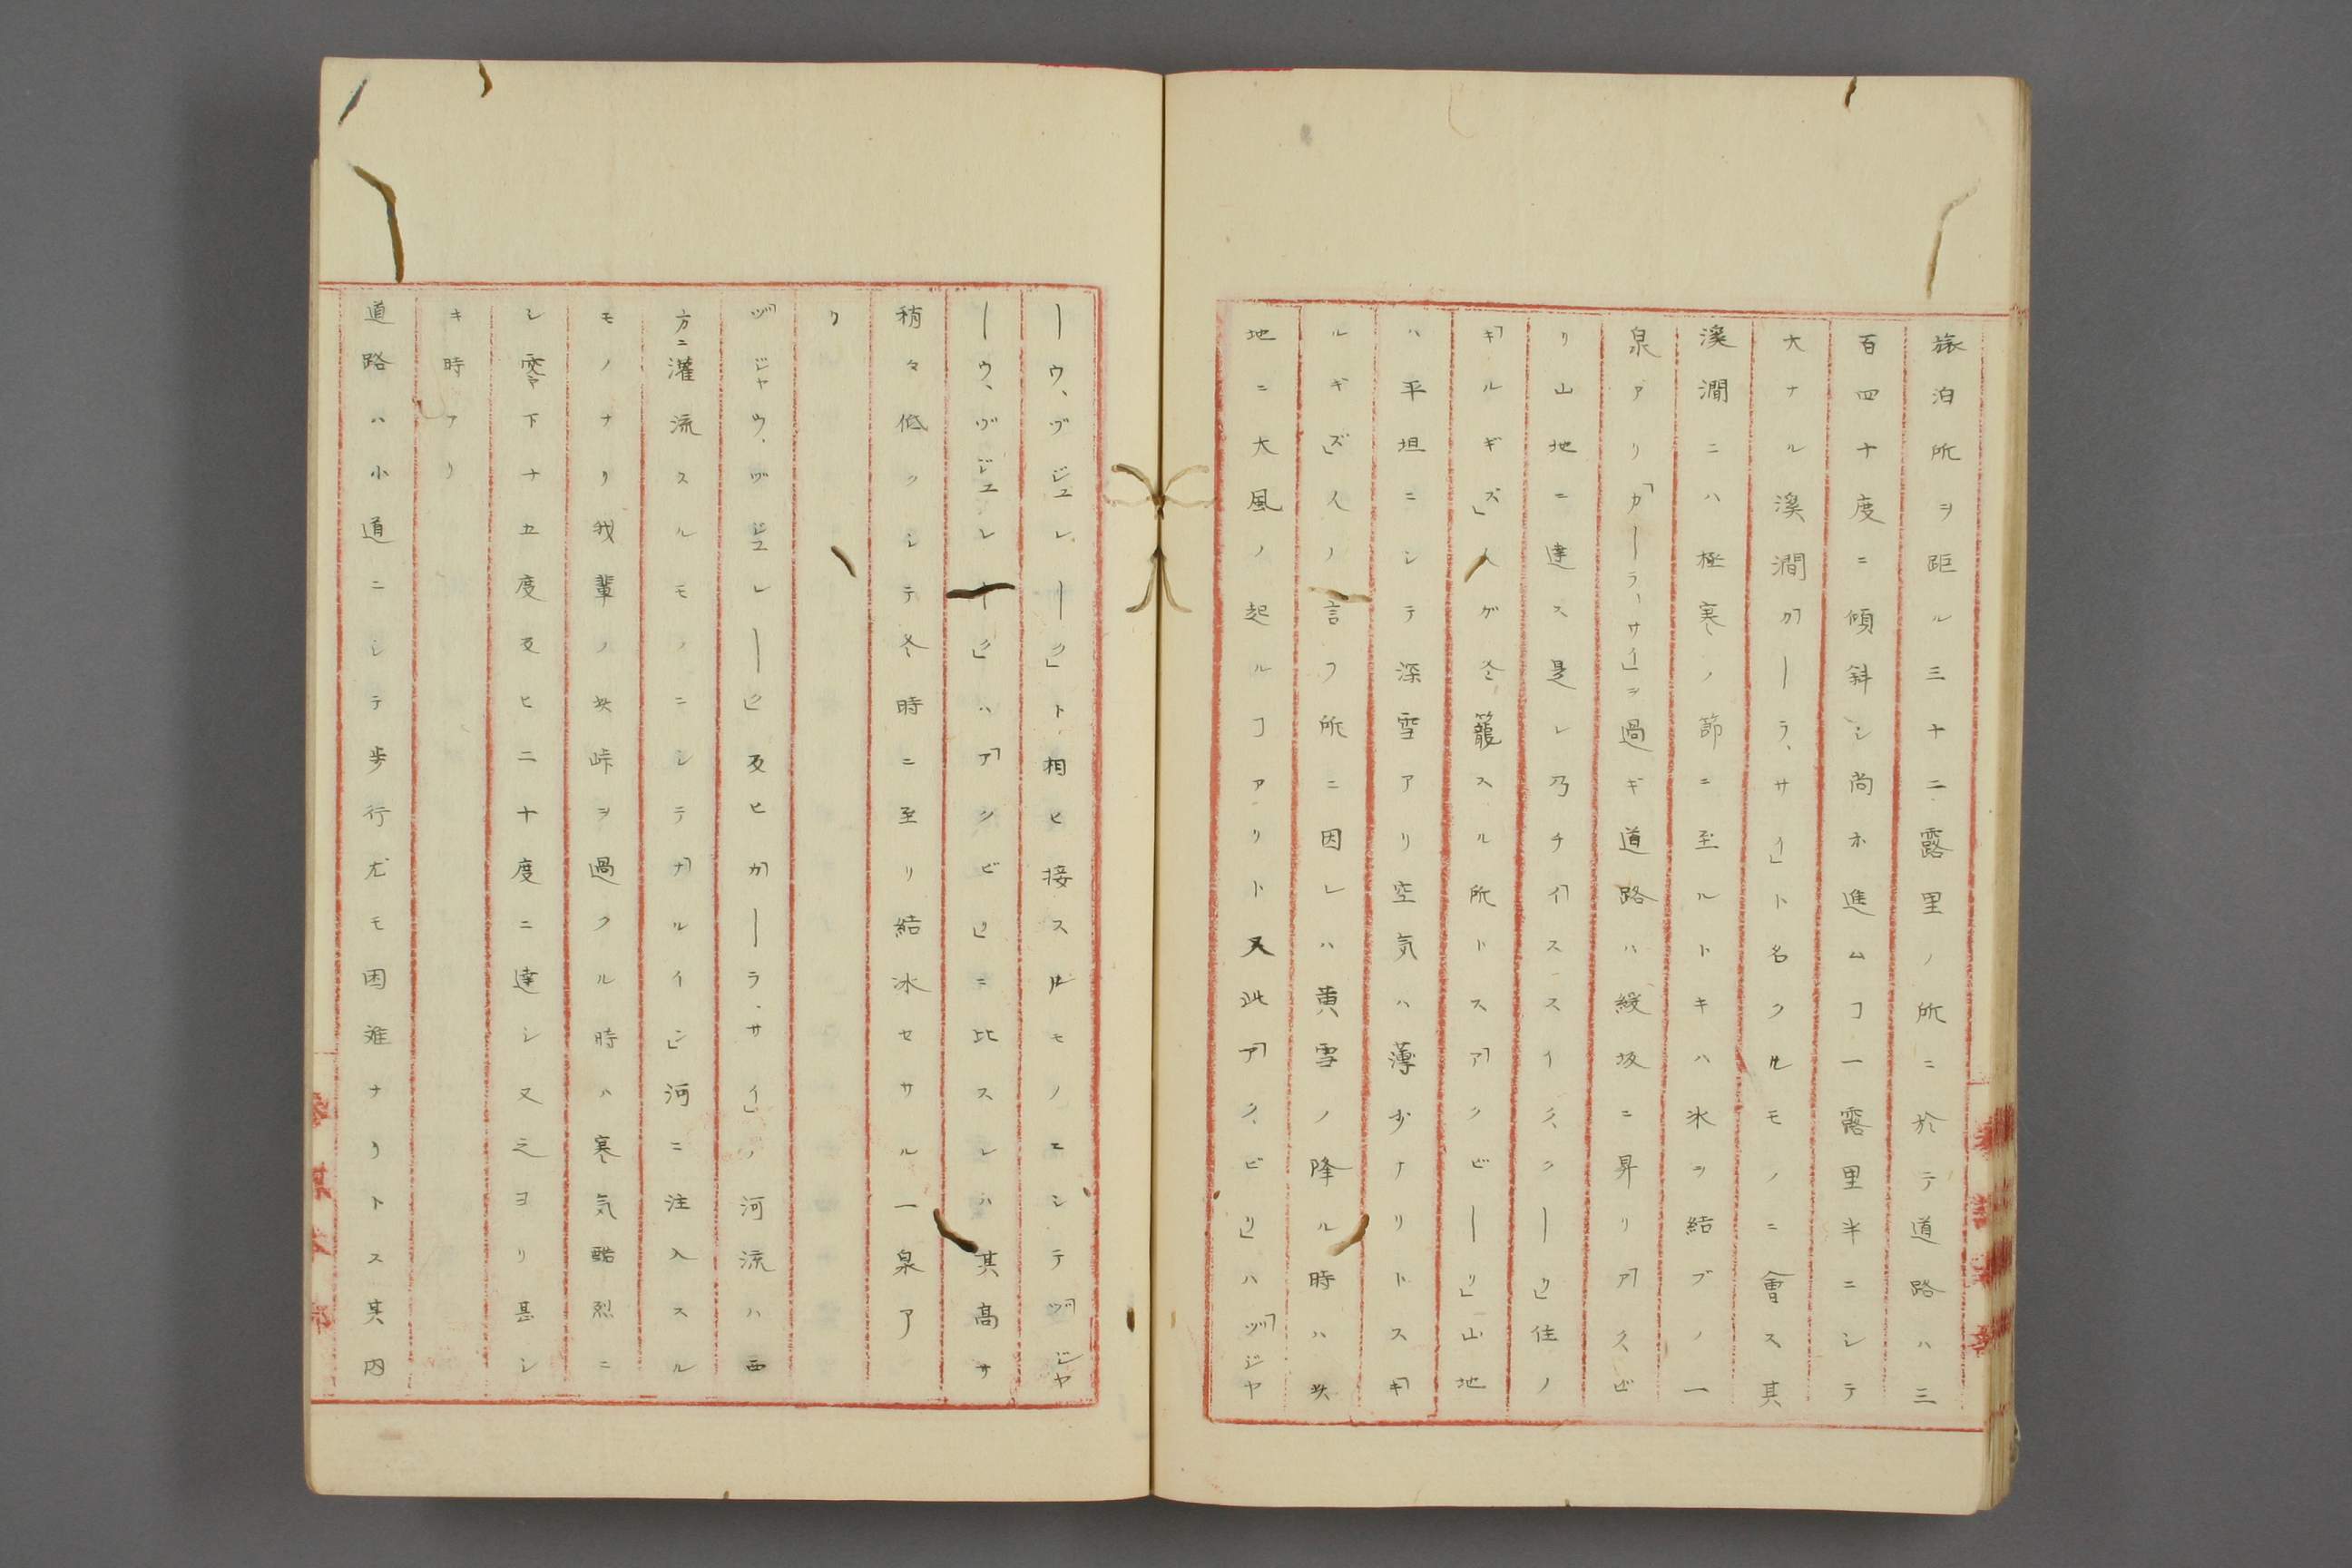 旅泊所ヲ距ル三十二露里ノ所ニ於テ道路ハ三
百四十度ニ傾斜シ尚ホ進ムヿ一露里半ニシテ
大ナル溪澗「カーラ、サイ」ト名クルモノニ會ス其
溪澗ニハ極寒ノ節ニ至ルトキハ氷ヲ結ブノ一
泉アリ「カーラ、サイ」ヲ過ギ道路ハ緩坂ニ昇リ「アク、ビ
リ山地ニ達ス是レ乃チ「イススイク、クーリ」住ノ
「キルギズ」人ガ冬籠スル所トス「アクビーリ」山地
ハ平坦ニシテ深雪アリ空気ハ薄少ナリトス「キ
ルギズ」人ノ言フ所ニ因レハ黄雪ノ降ル時ハ必
地ニ大風ノ起ルヿアリト又此「アク、ビリ」ハ「ヅジャ
ーウ、ヅジュレーク」ト相ヒ接スルモノニシテ「ヅジャ
ーウ、ヅジュレーク」ハ「アクビリ」ニ比スレハ其高サ
稍々低クシテ冬時ニ至リ結氷セサル一泉ア
リ
「ヅジャウ、ヅジュレーク」及ヒ「カーラ、サイ」ノ河流ハ西
方ニ灌流スルモノニシテ「ナルイン」河ニ注入スル
モノナリ我輩ノ此峠ヲ過クル時ハ寒気酷烈ニ
シ零下十五度及ヒ二十度ニ達シ又之ヨリ甚シ
キ時アリ
道路ハ小道ニシテ歩行尤モ困難ナリトス其内